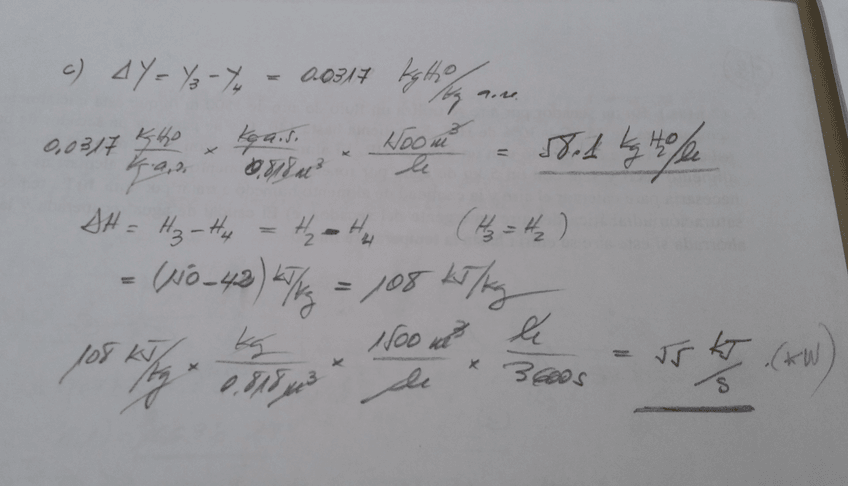 c) ΔY = Y₃ - Y₄ = 0.0317 kgH₂O/kg a.s.
0.0317 kgH₂O/kg a.s. × kg a.s./0.818 m³ × 1500 m³/h = 58.1 kg H₂O/h
ΔH = H₃ - H₄ = H₂ - H₄ (H₃ = H₂)
= (150 - 42) kJ/kg = 108 kJ/kg
108 kJ/kg × kg/0.818 m³ × 1500 m³/h × h/3600 s = 55 kJ/s . (kW)